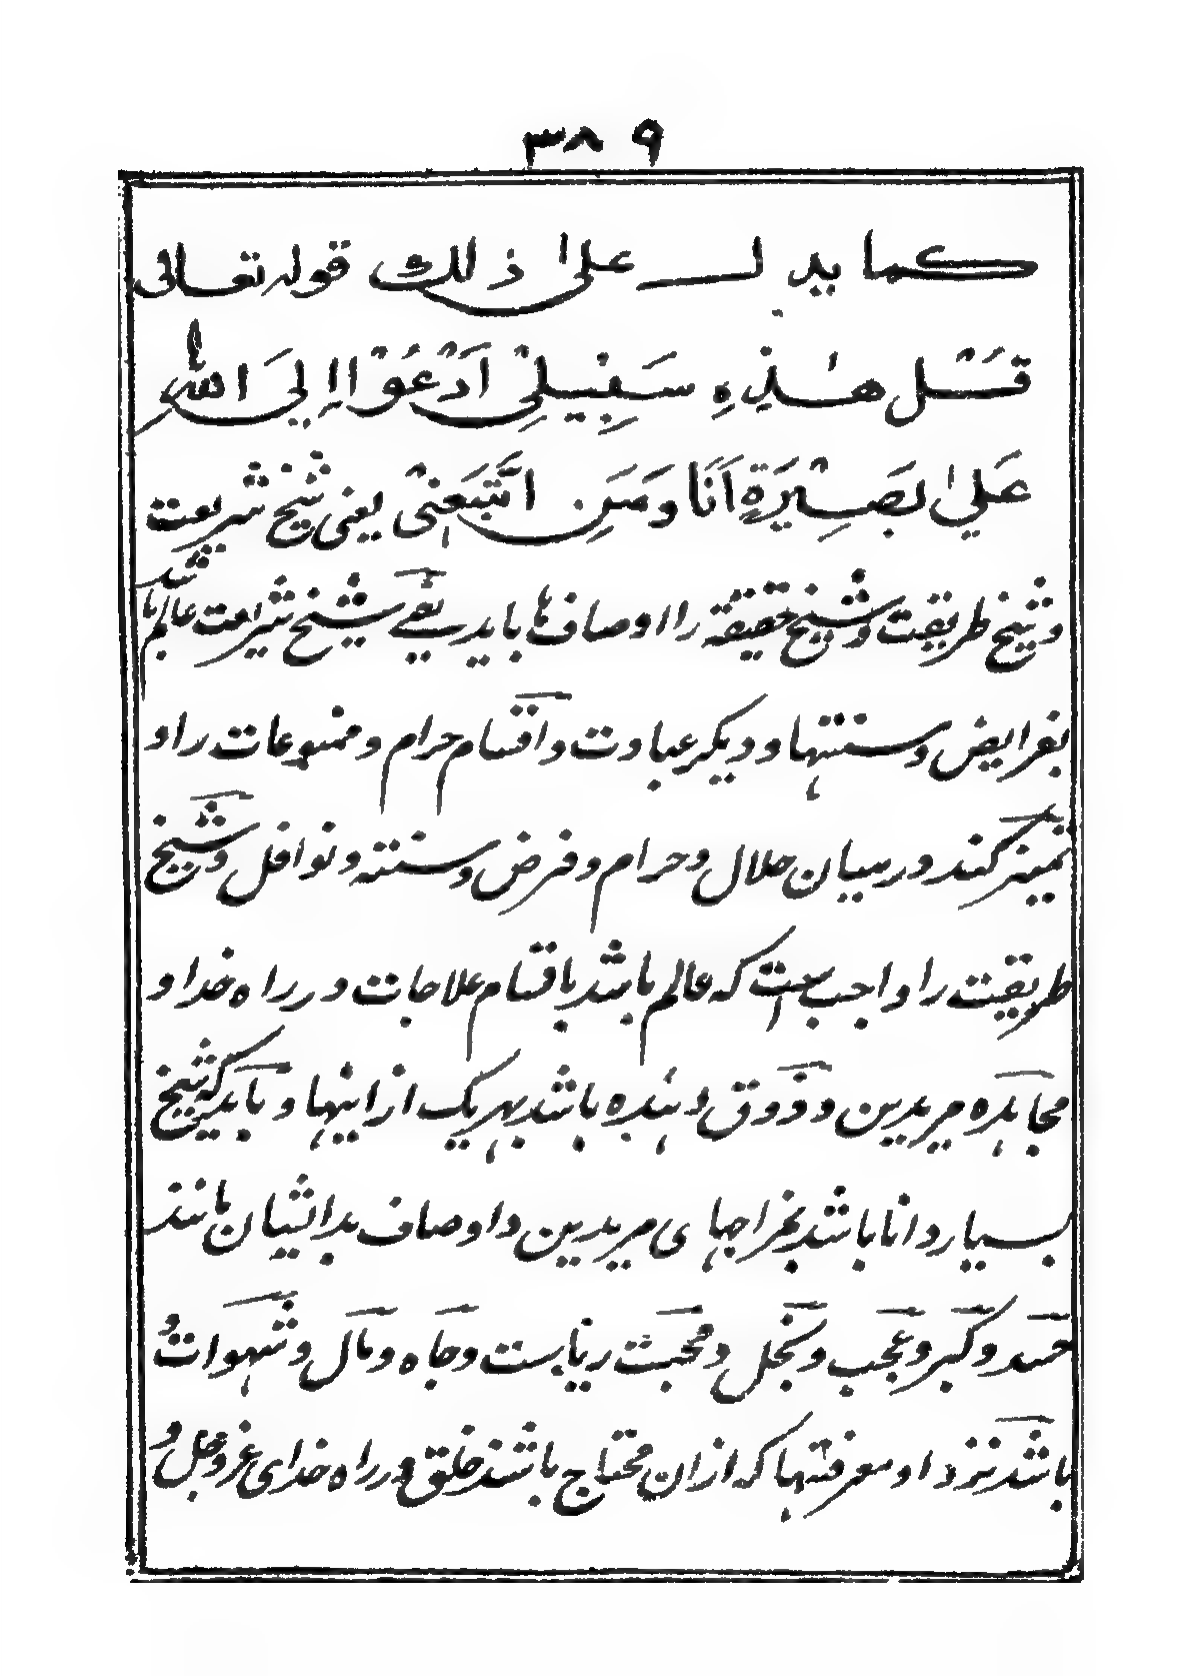 ٣٨٩
كما يدل على ذلك قوله تعالى
قُلْ هٰذِهٖ سَبِيْلِيْ اَدْعُوْا اِلَى اللهِ
عَلٰى بَصِيْرَةٍ اَنَا وَمَنِ اتَّبَعَنِيْ یعنی شیخ شریعت
وشیخ طریقت وشیخ حقیقة را اوصاف‌ها باید یعنی شیخ شریعت عالم باشد
بفرایض وسنتها ودیگر عبادت واقسام حرام وممنوعات را و
تمیز کند درمیان حلال وحرام وفرض وسنته ونوافل وشیخ
طریقت را واجب است که عالم باشد باقسام علاجات در راه خدا و
مجاهده مریدین وذوق دهنده باشد بهریک ازاینها وباید که شیخ
بسیار دانا باشد بمزاجهای مریدین واوصاف بدایشان مانند
حسد وکبر وعجب وبخل ومحبت ریاست وجاه ومال وشهوات
باشد نزد او معرفتها که ازان محتاج باشد خلق در راه خدای عزوجل و